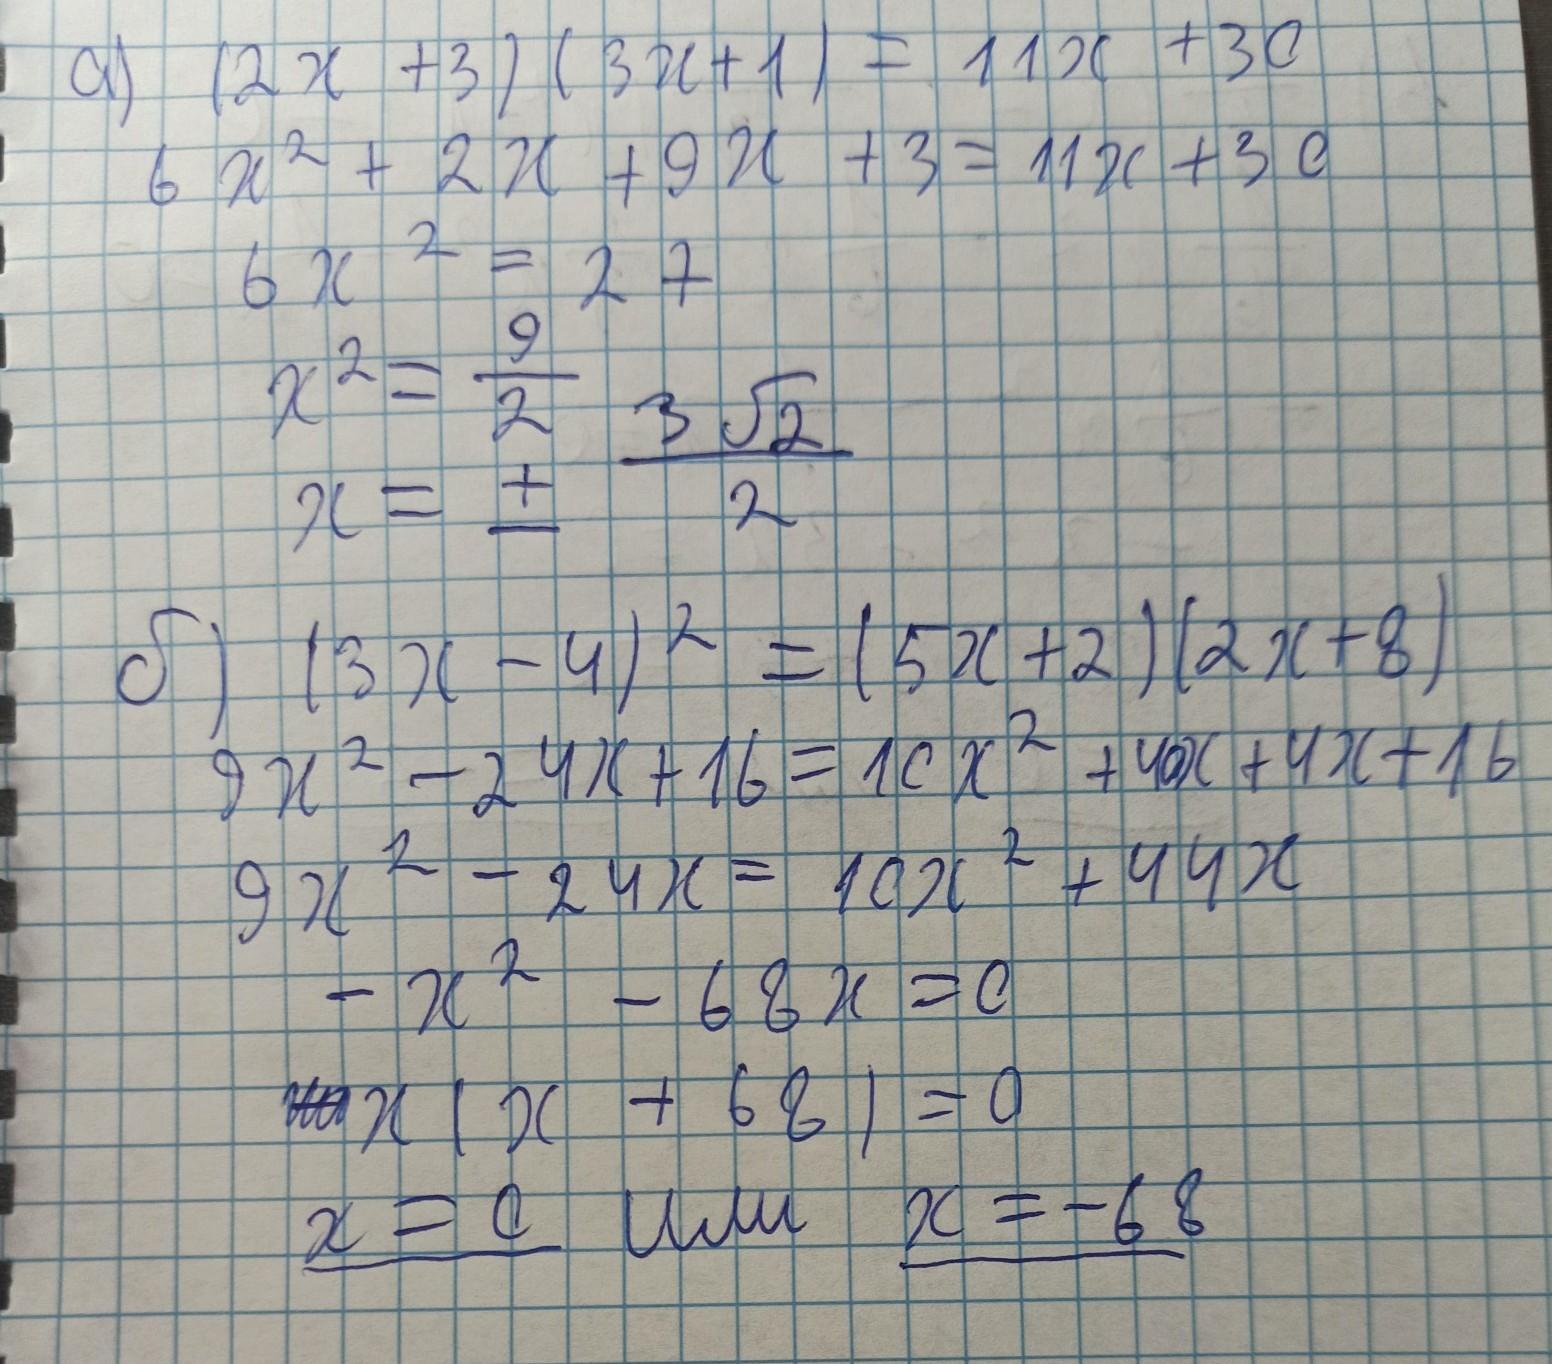 а) (2x + 3)(3x + 1) = 11x + 30
6x² + 2x + 9x + 3 = 11x + 30
6x² = 27
x² = 9/2
x = ± 3√2/2
б) (3x - 4)² = (5x + 2)(2x + 8)
9x² - 24x + 16 = 10x² + 40x + 4x + 16
9x² - 24x = 10x² + 44x
- x² - 68x = 0
x(x + 68) = 0
x = 0 или x = -68